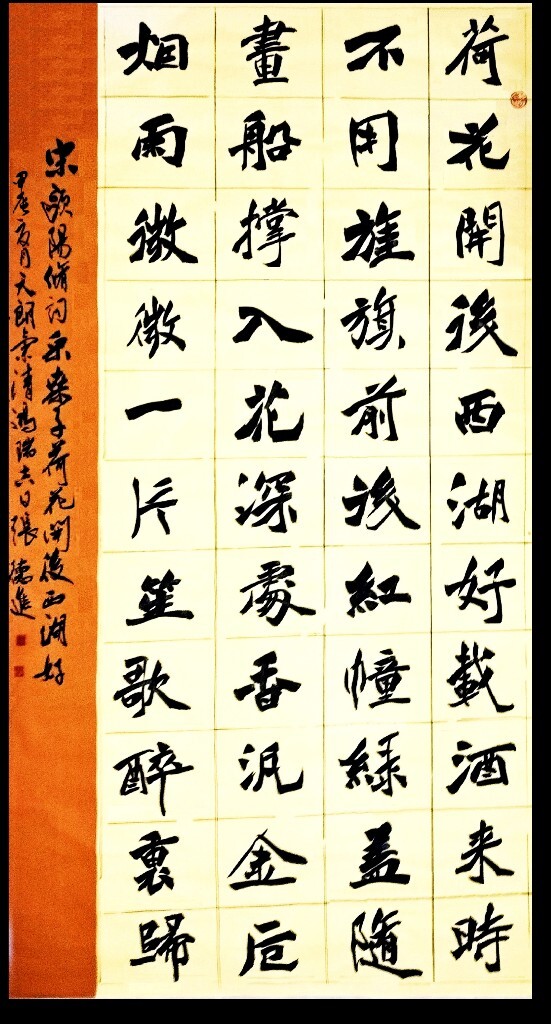 荷花開後西湖好載酒来時
不用旌旗前後紅幢綠蓋隨
畫船撑入花深處香汎金卮
烟雨微微一片笙歌醉裏歸
宋歐陽修词采桑子荷花開後西湖好
甲辰夏月天朗氣清鴻瑞吉日張德進